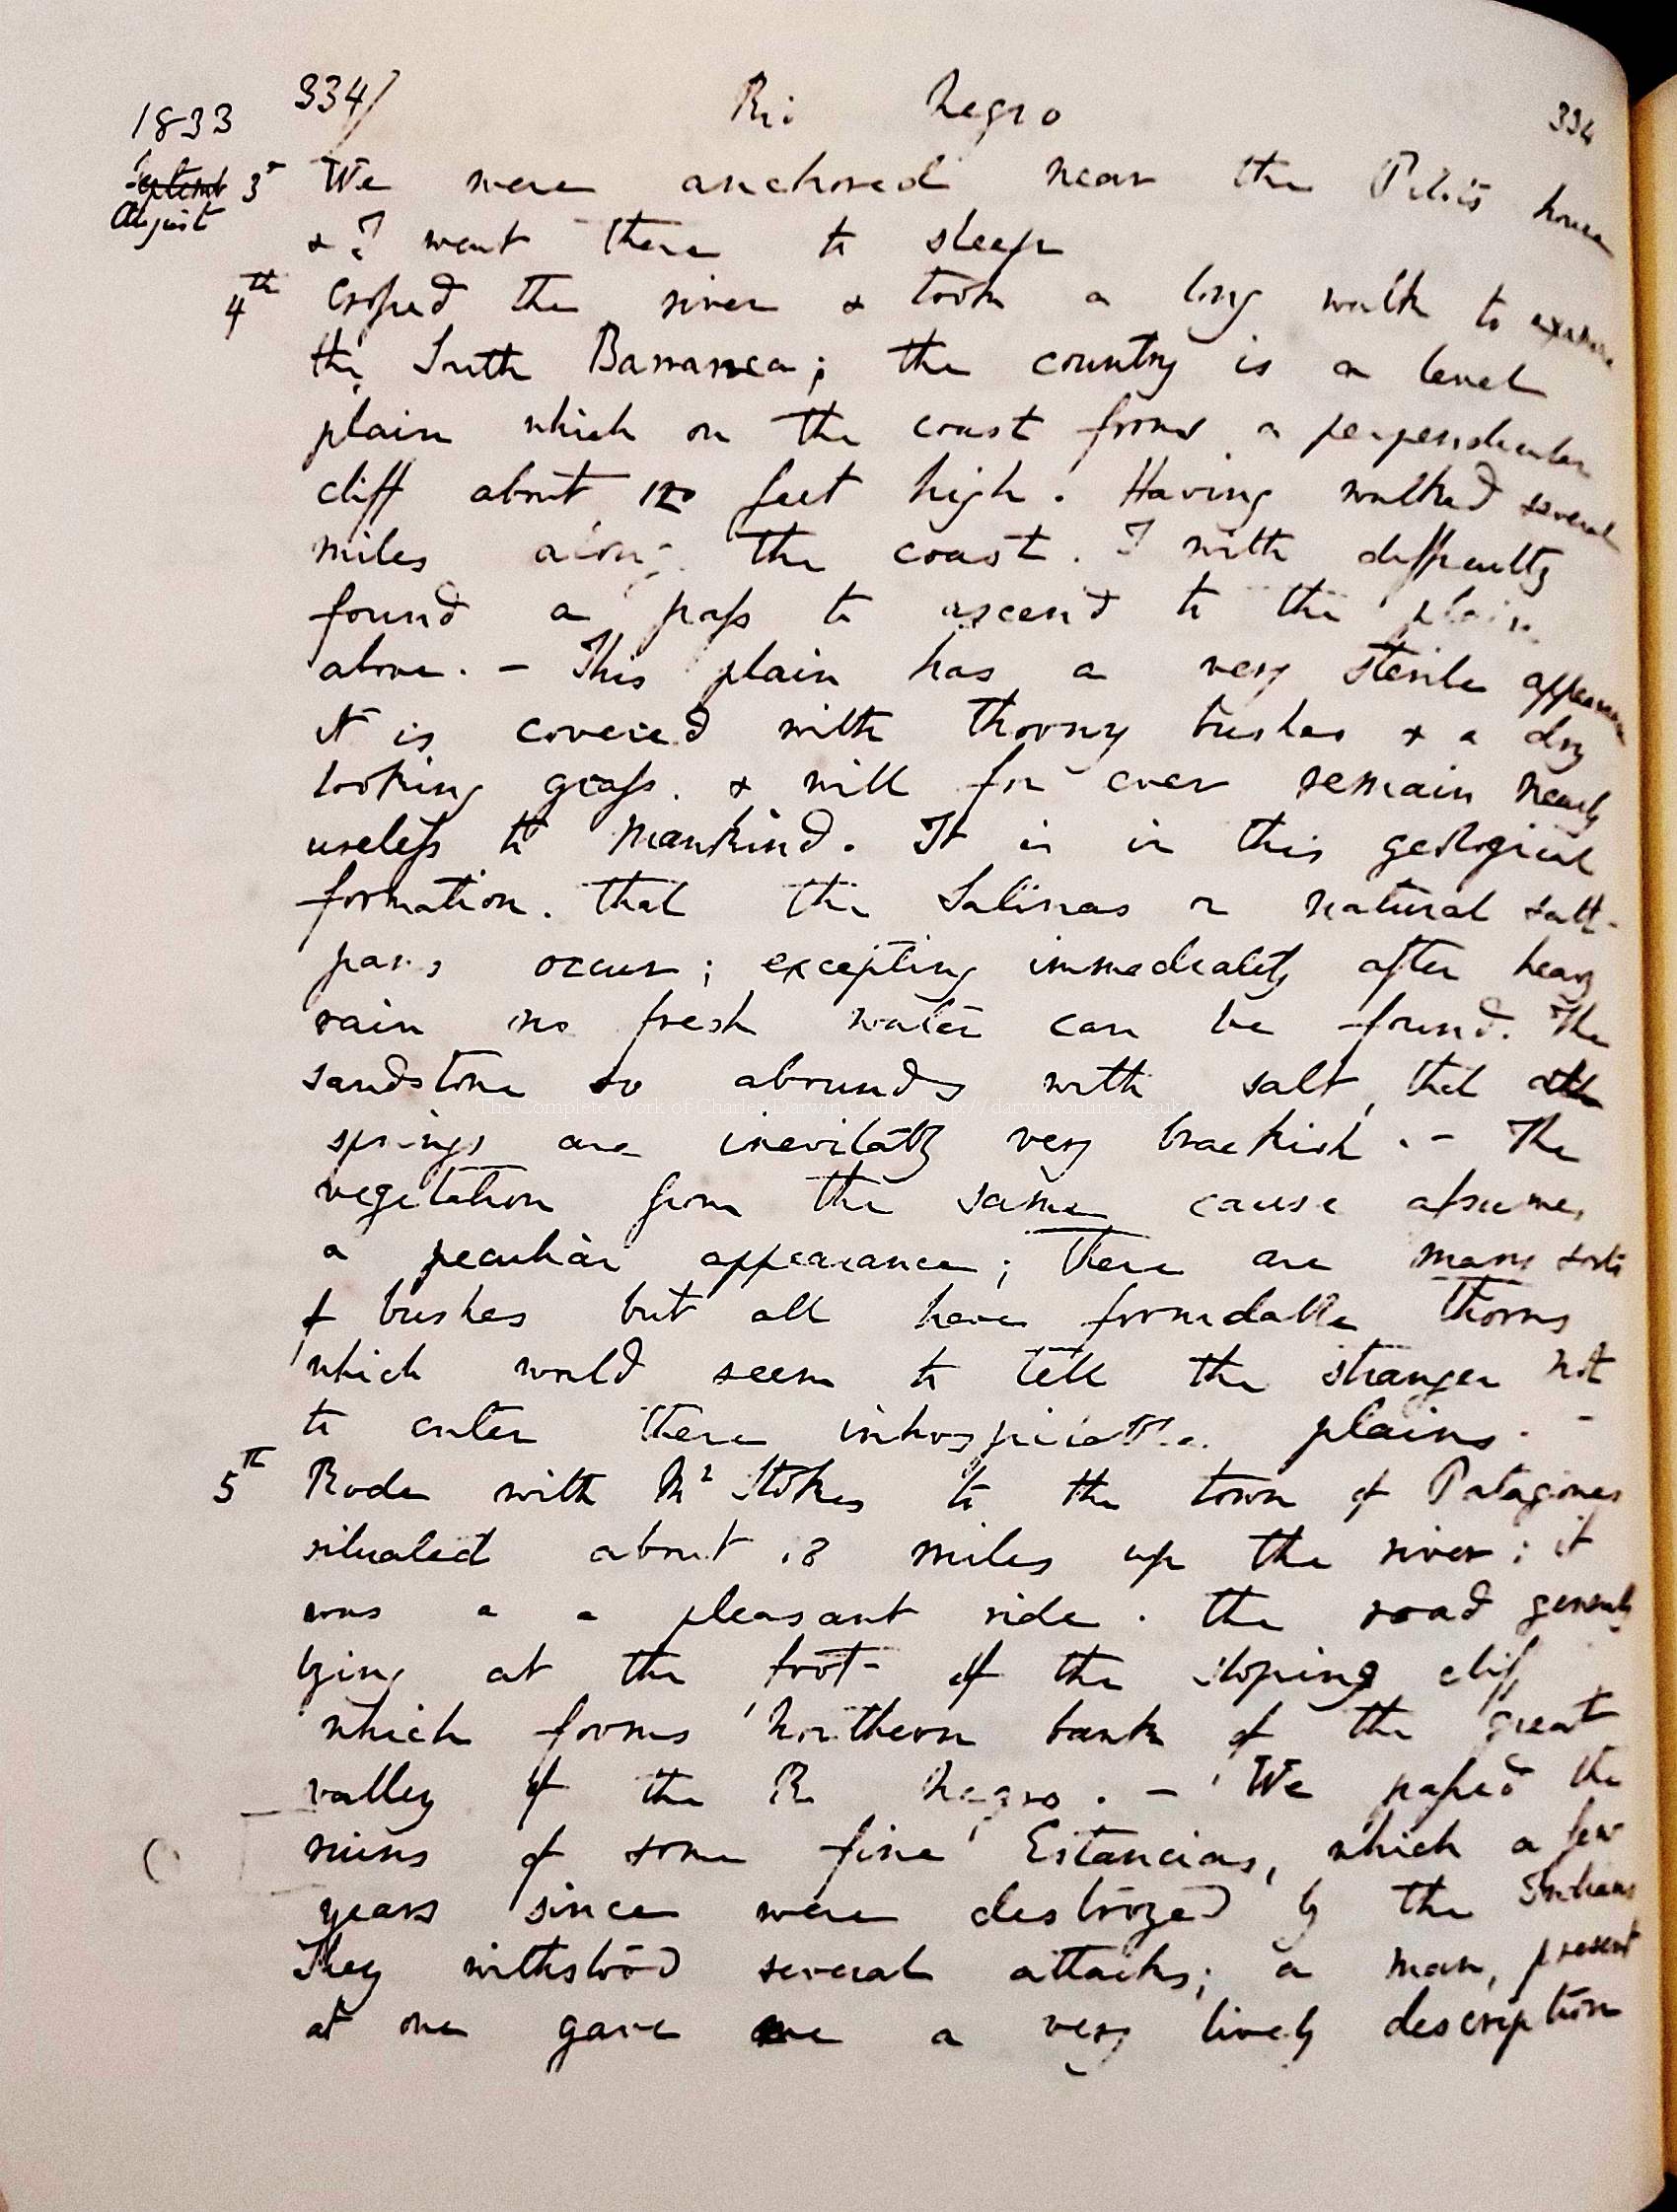 334/ Rio Negro 334
1833
Septemb 3rd We were anchored near the Pilots house
August
& I went there to sleep
4th Crossed the river & took a long walk to examine
the South Barranca; the country is a level
plain which on the coast forms a perpendicular
cliff about 120 feet high. Having walked several
miles along the coast. I with difficulty
found a pass to ascend to the plain
above. - This plain has a very sterile appearance
it is covered with thorny bushes & a dry
looking grass. & will for ever remain nearly
useless to Mankind. It is in this geological
formation. that the Salinas or natural salt-
pans occur; excepting immediately after heavy
rain no fresh water can be found. The
sandstone so abounds with salt, that all
springs are inevitably very brackish. - The
vegetation from the same cause assumes
a peculiar appearance; there are many sorts
of bushes but all have formidable thorns
which would seem to tell the stranger not
to enter these inhospitable plains. -
5th Rode with Mr Stokes to the town of Patagones
situated about 18 miles up the river: it
was a a pleasant ride. the road generally
lying at the foot of the sloping cliff
which forms Northern bank of the great
valley of the R Negro. - We passed the
ruins of some fine Estancias, which a few
years since were destroyed by the Indians
They withstood several attacks; a man, present
at one gave me a very lively description
The Complete Work of Charles Darwin Online (http://darwin-online.org.uk/)